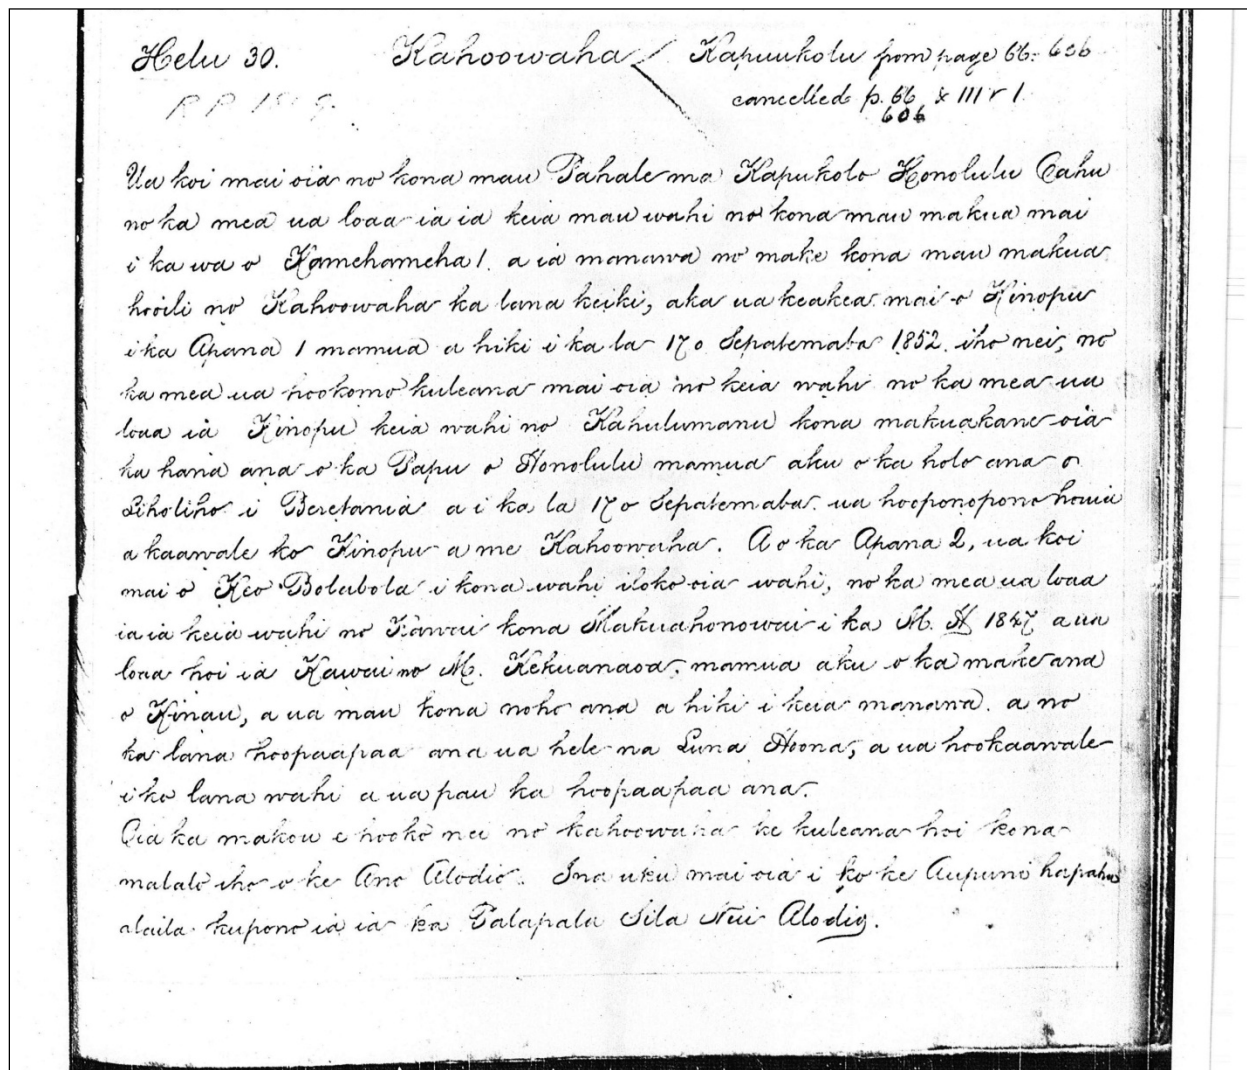 Helu 30. Kahoowaha Kapuukolu from page 66. 606
R P 1519.
cancelled p. 66 & III v 1.
606
Ua koi mai oia no kona mau Pahale ma Kapukolo Honolulu Oahu
no ka mea ua loaa ia ia keia mau wahi no kona mau makua mai
i ka wa o Kamehameha 1. a ia manawa no make kona mau makua
hooili no Kahoowaha ka lana keiki, aka ua keakea mai o Kinopu
i ka Apana 1 mamua a hiki i ka la 17 o Sepatemaba 1852. iho nei, no
ka mea ua hookomo kuleana mai oia no keia wahi no ka mea ua
loaa ia Kinopu keia wahi no Kahulumanu kona makuakane oia
ka hana ana o ka Papu o Honolulu mamua aku o ka holo ana o
Liholiho i Beretania a i ka la 17 o Sepatemaba ua hooponopono houia
a kaawale ko Kinopu a me Kahoowaha. A o ka Apana 2, ua koi
mai o Keo Bolabola i kona wahi iloko oia wahi, no ka mea ua loaa
ia ia keia wahi no Kawai kona Makuahonowai i ka M. H 1847 a ua
loaa hoi ia Kawai no M. Kekuanaoa, mamua aku o ka make ana
o Kinau, a ua mau kona noho ana a hiki i keia manawa. a no
ka lana hoopaapaa ana ua hele na Luna Hoona, a ua hookaawale
i ko lana wahi a ua pau ka hoopaapaa ana.
Oia ka makou e hooko nei no kahoowaha ke kuleana hoi kona
malalo iho o ke Ano Alodio. Ina uku mai oia i ko ke Aupuni hapaha
alaila kupono ia ia ka Palapala Sila Nui Alodio.